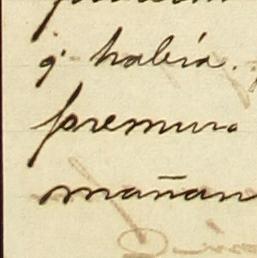 q. había.
premura
mañan